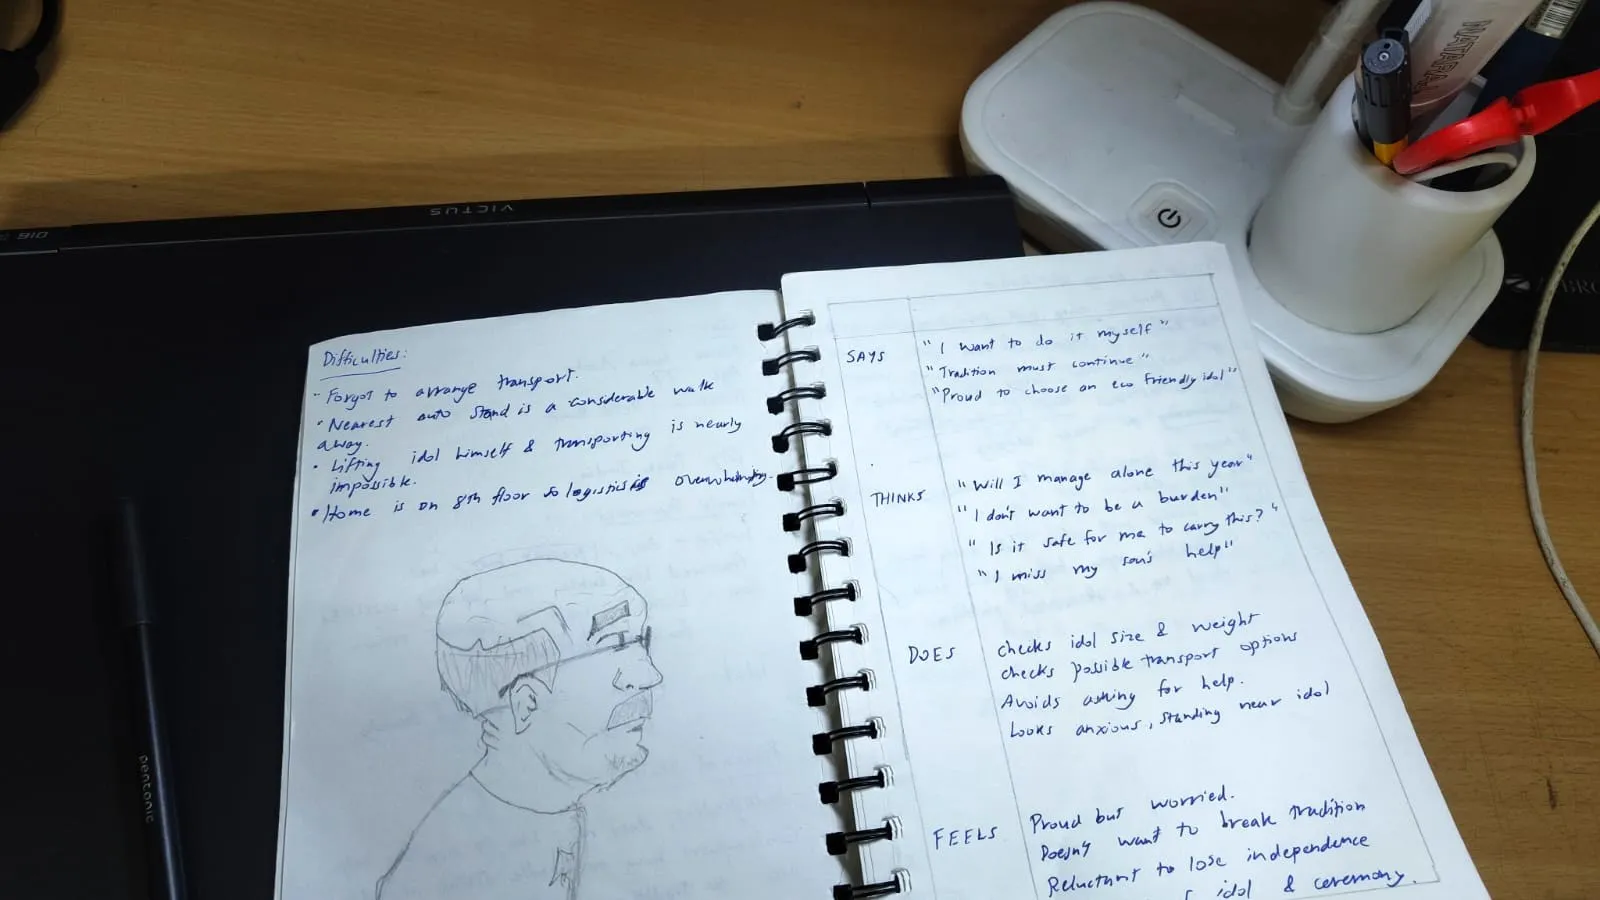 Difficulties:
• Forgot to arrange transport.
• Nearest auto stand is a considerable walk
away.
• Lifting idol himself & transporting is nearly
impossible.
• Home is on 8th floor so logistics is overwhelming.
SAYS
"I want to do it myself"
"Tradition must continue"
"Proud to choose an eco friendly idol"
THINKS
"Will I manage alone this year"
"I don't want to be a burden"
"Is it safe for me to carry this?"
"I miss my son's help"
DOES
checks idol size & weight
checks possible transport options
Avoids asking for help.
Looks anxious, standing near idol
FEELS
Proud but worried.
Doesn't want to break tradition
Reluctant to lose independence
idol & ceremony.
VICTUS
Pentonic
NATARAJ